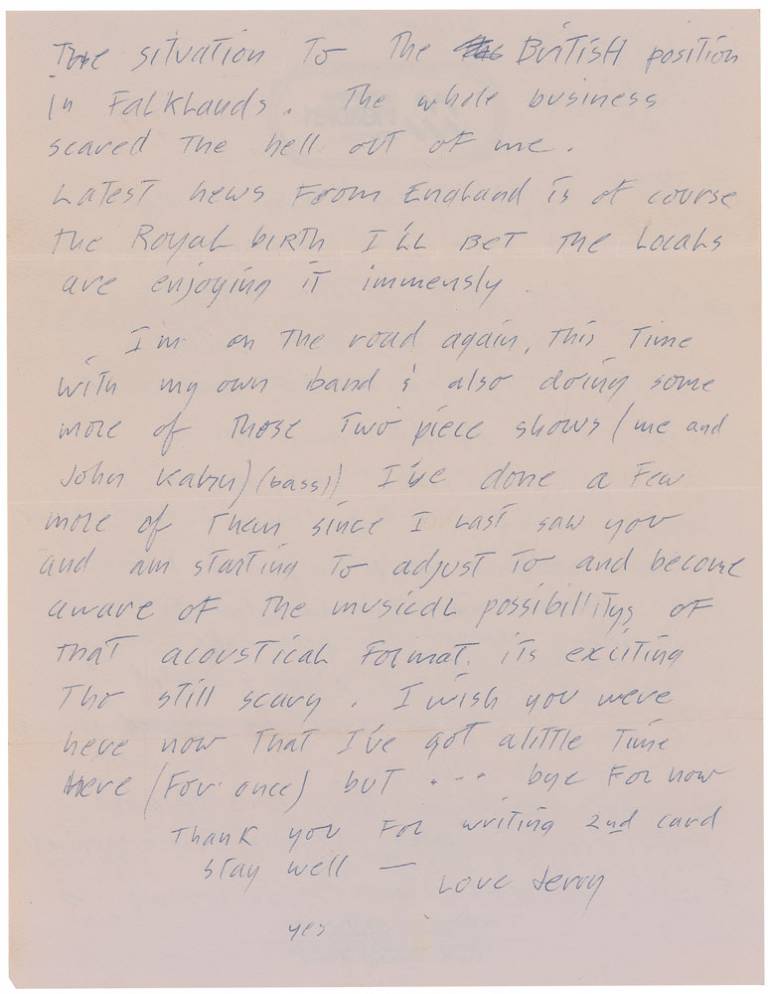 The situation to the British position
in Falklands. The whole business
scared the hell out of me.
Latest news From England is of course
the Royal birth I'LL BET the Locals
are enjoying it immensly.
I'm on the road again, this time
with my own band & also doing some
more of those two piece shows (me and
John Kahn) (bass)) I've done a few
more of them since I last saw you
and am starting to adjust to and become
aware of the musical possibilitys of
that acoustical format. its exciting
Tho still scary. I wish you were
here now that I've got alittle Time
Here (For once) but ... bye For now
Thank you For writing 2nd card
stay well — Love Jerry
yes